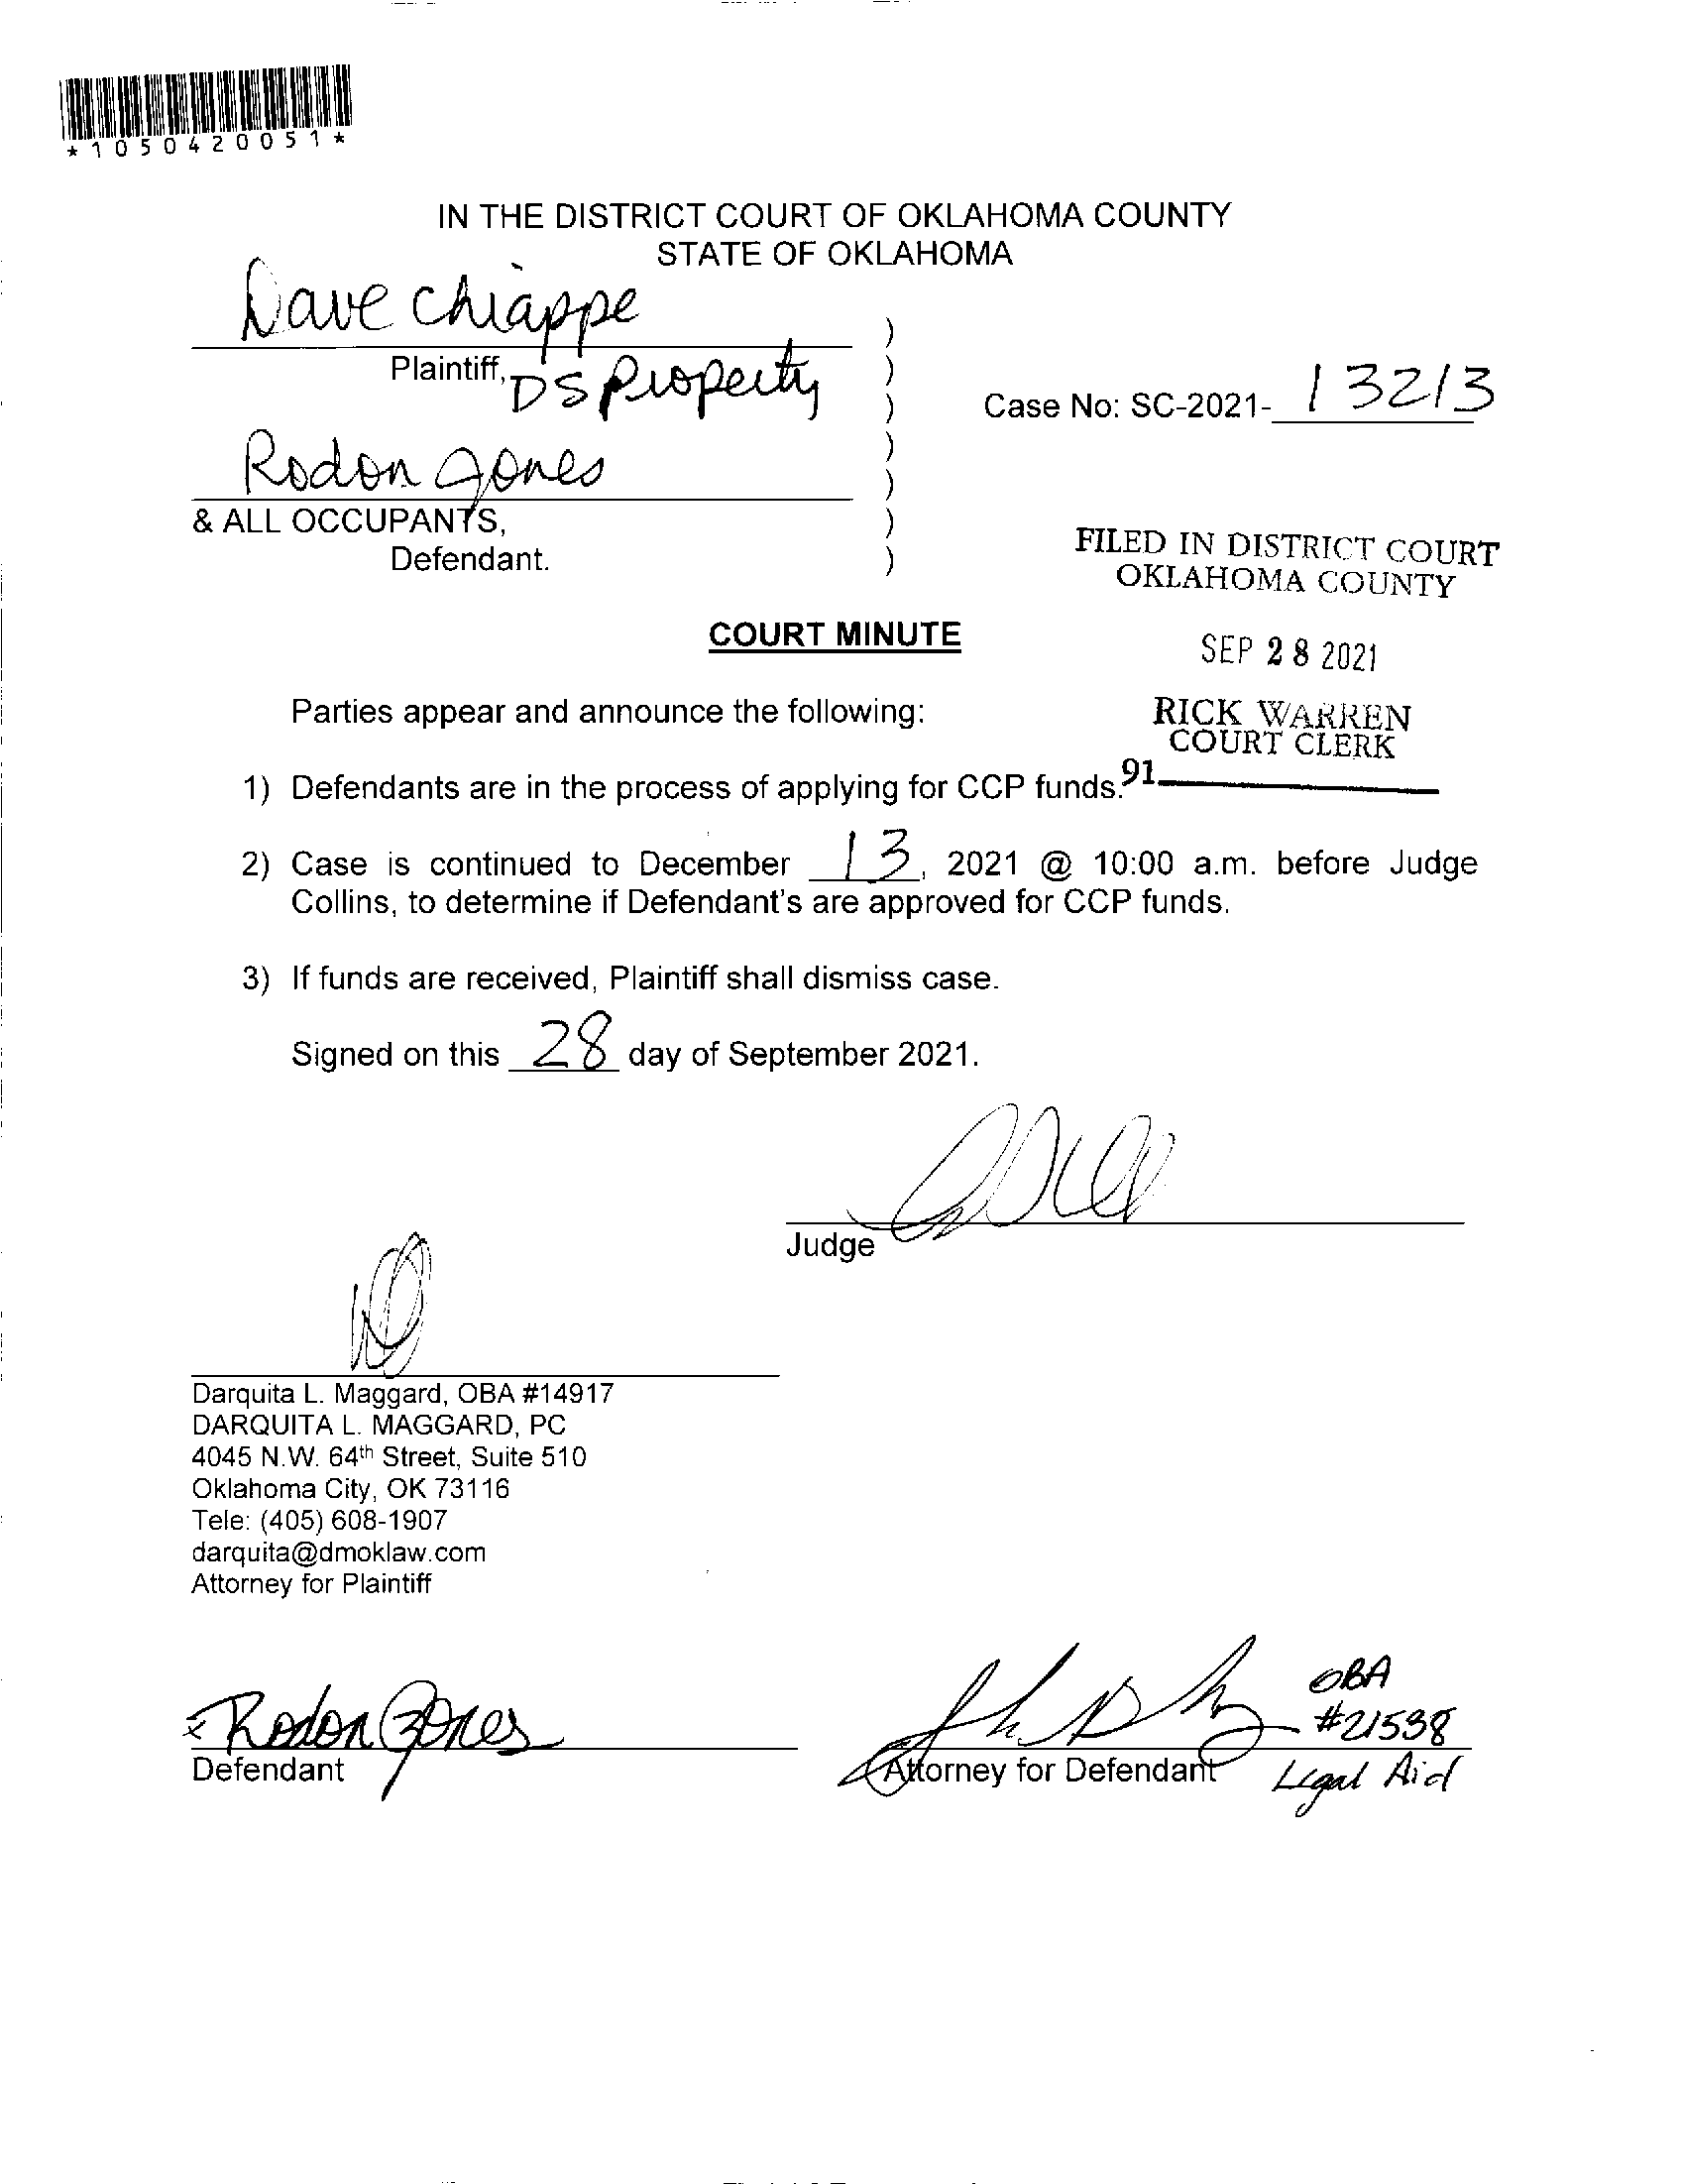 *1050420051*
IN THE DISTRICT COURT OF OKLAHOMA COUNTY
STATE OF OKLAHOMA
Dave Chiappe
Plaintiff, DS Property
Case No: SC-2021- 13213
Rodon Jones
& ALL OCCUPANTS,
Defendant.
)
)
)
)
)
)
)
FILED IN DISTRICT COURT
OKLAHOMA COUNTY
COURT MINUTE
SEP 28 2021
Parties appear and announce the following:
RICK WARREN
COURT CLERK
91
1) Defendants are in the process of applying for CCP funds.
2) Case is continued to December 13, 2021 @ 10:00 a.m. before Judge
Collins, to determine if Defendant's are approved for CCP funds.
3) If funds are received, Plaintiff shall dismiss case.
Signed on this 28 day of September 2021.
Judge
Darquita L. Maggard, OBA #14917
DARQUITA L. MAGGARD, PC
4045 N.W. 64th Street, Suite 510
Oklahoma City, OK 73116
Tele: (405) 608-1907
darquita@dmoklaw.com
Attorney for Plaintiff
x Rodon Jones
Defendant
OBA
#21538
Attorney for Defendant
Legal Aid